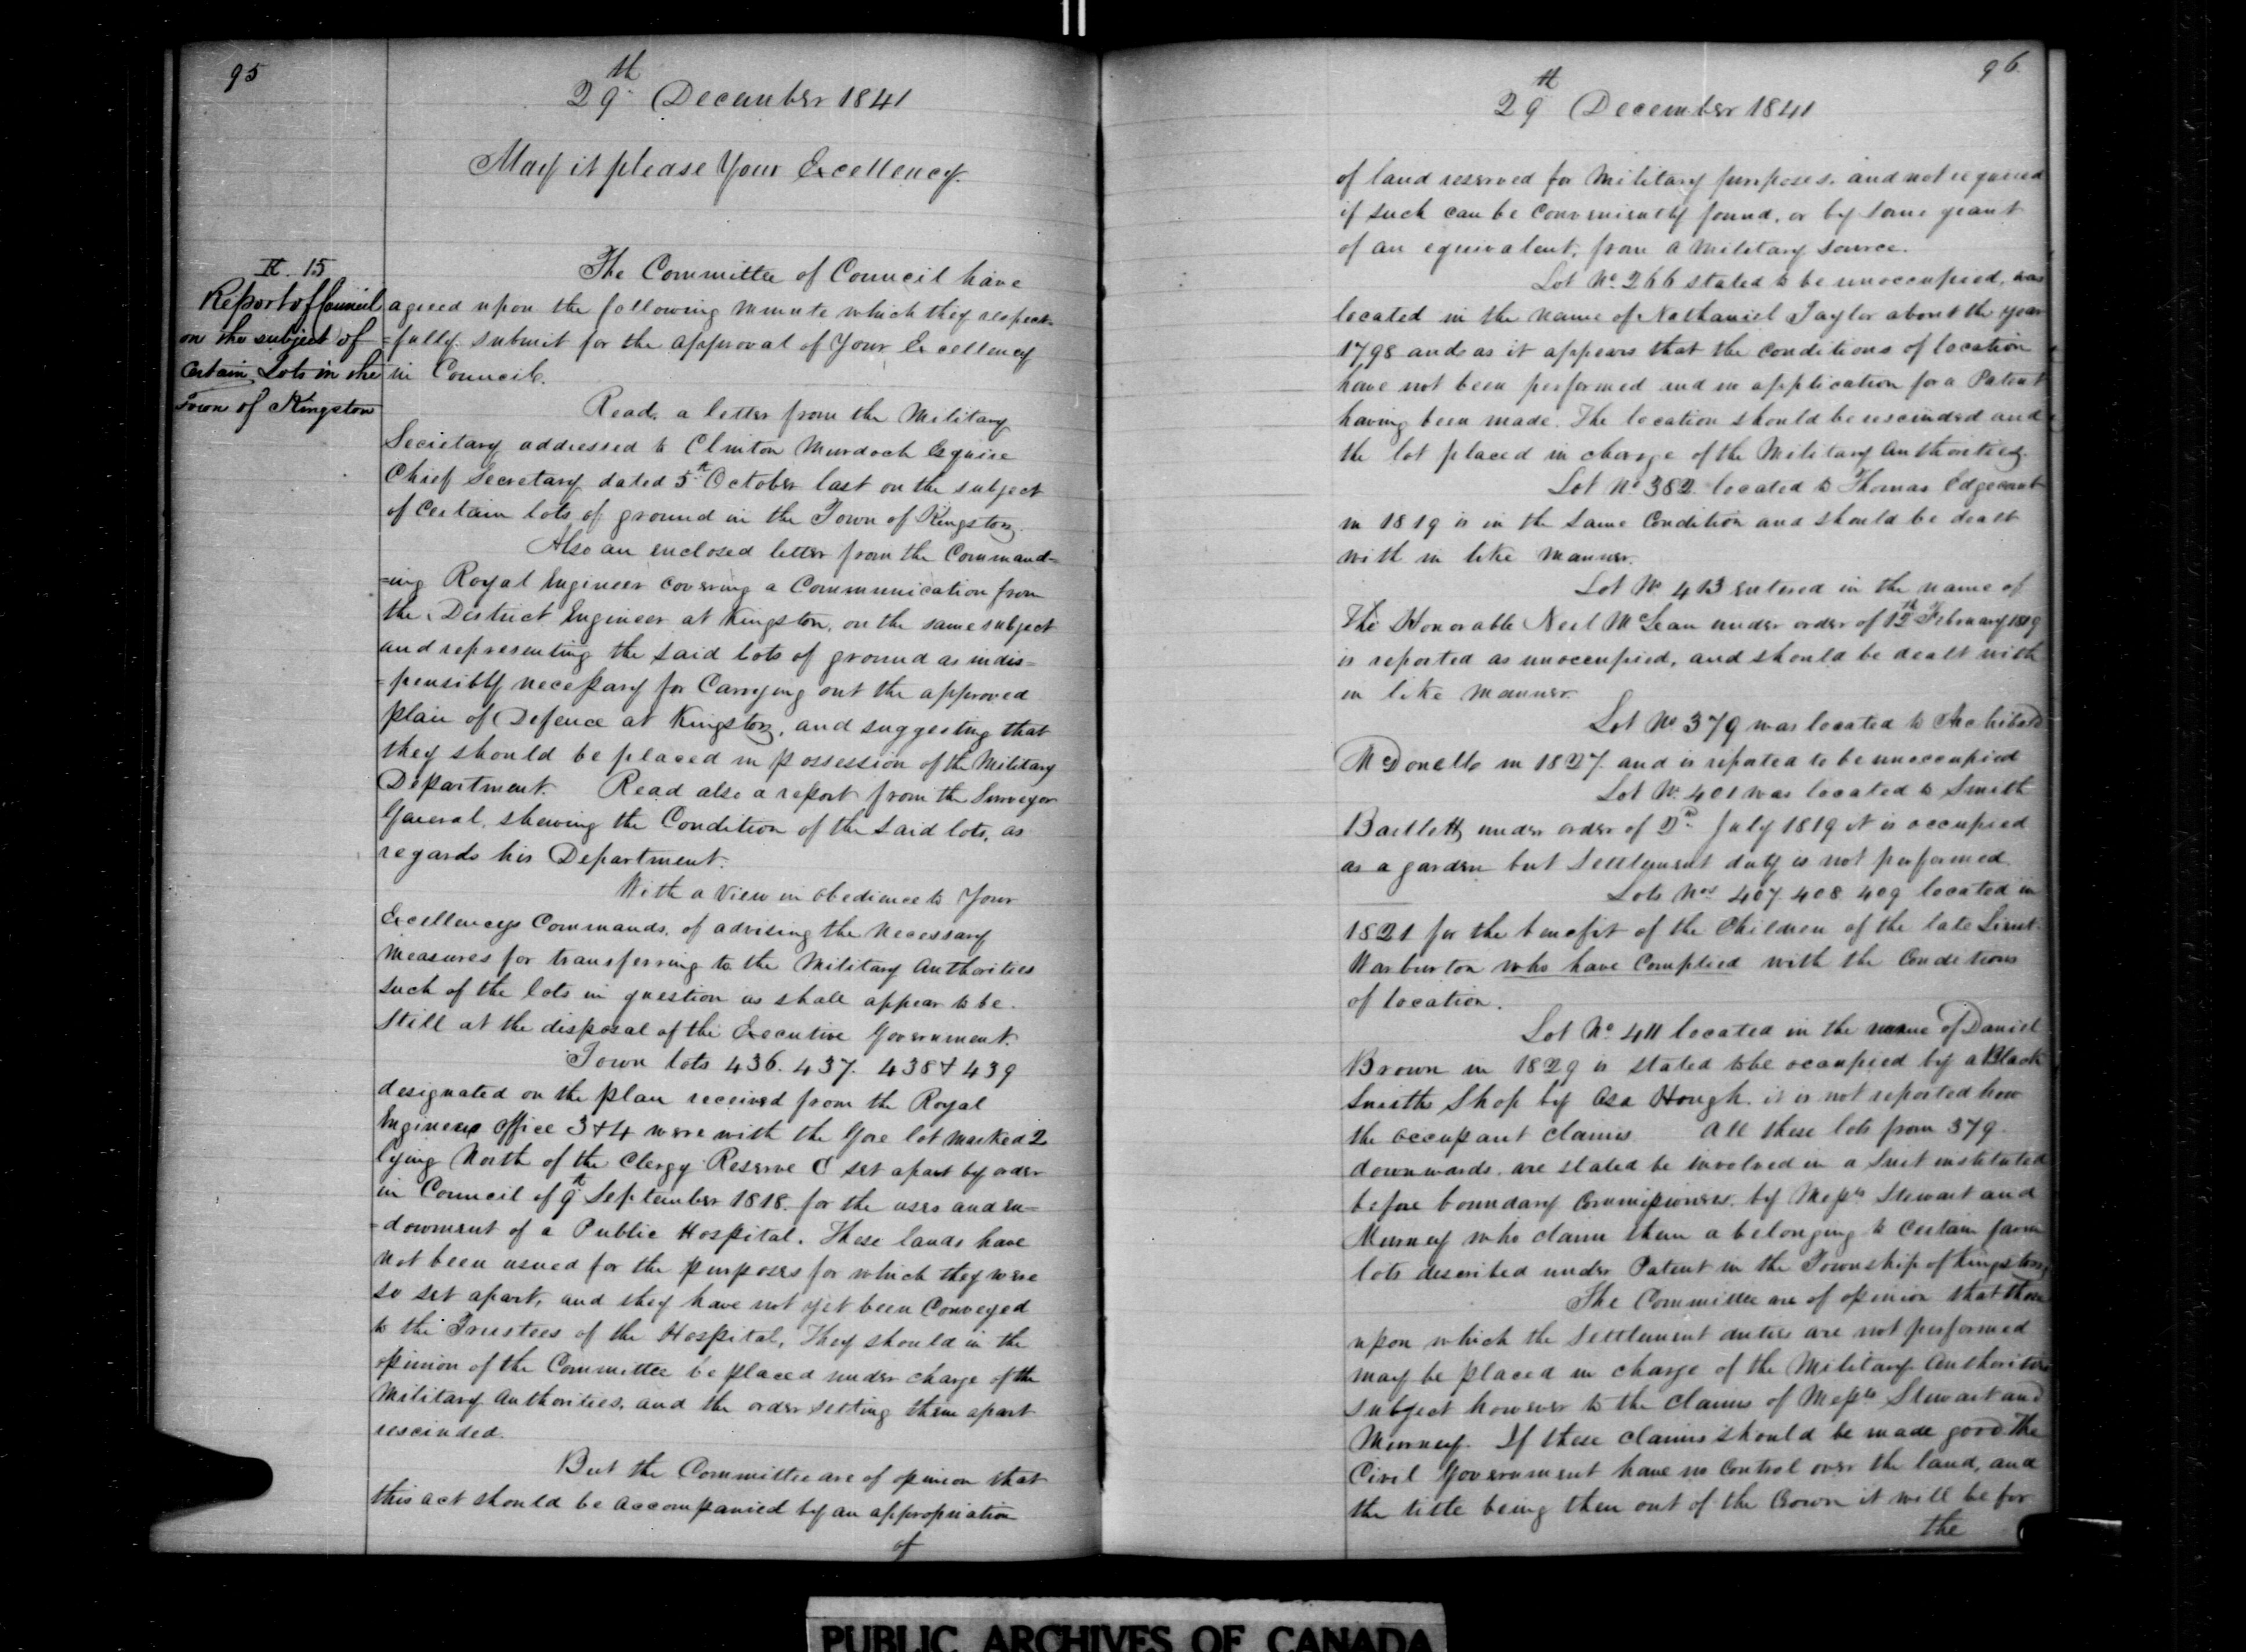 95
29th December 1841
May it please Your Excellency.
K. 15
Report of Council
on the subject of
certain Lots in the
Town of Kingston
The Committee of Council have
agreed upon the following minute which they respect-
=fully submit for the approval of Your Excellency
in Council.
Read, a letter from the Military
Secretary addressed to Clinton Murdoch Esquire
Chief Secretary dated 5th October last on the subject
of certain lots of ground in the Town of Kingston.
Also an enclosed letter from the Command=
=ing Royal Engineer covering a Communication from
the District Engineer at Kingston, on the same subject
and representing the said lots of ground as indis=
=pensibly necessary for Carrying out the approved
plan of Defence at Kingston, and suggesting that
they should be placed in possession of the Military
Department. Read also a report from the Surveyor
General, shewing the Condition of the said lots, as
regards his Department.
With a view in obedience to Your
Excellencys Commands, of advising the Necessary
measures for transferring to the Military Authorities
such of the lots in question as shall appear to be
still at the disposal of the Executive Government.
Town lots 436. 437. 438 & 439
designated on the plan received from the Royal
Engineers office 3 & 4 were with the Gore lot marked 2
lying North of the Clergy Reserve C set apart by order
in Council of 9th September 1818. for the uses and en=
=dowment of a Public Hospital. These lands have
not been usued for the purposes for which they were
so set apart, and they have not yet been Conveyed
to the Trustees of the Hospital, They should in the
opinion of the Committee be placed under charge of the
Military Authorities, and the order setting them apart
rescinded.
But the Committee are of opinion that
this act should be accompanied by an appropriation
of
96
29th December 1841
of land reserved for Military purposes, and not required
if such can be conveniently found, or by some grant
of an equivalent, from a Military source.
Lot No. 266 stated to be unoccupied, was
located in the name of Nathaniel Taylor about the year
1798 and as it appears that the conditions of location
have not been performed and no application for a Patent
having been made. The location should be rescinded and
the lot placed in charge of the Military Authorities.
Lot No 382 located to Thomas
in 1819 is in the same condition and should be dealt
with in like manner.
Lot No. 413 entered in the name of
The Honorable Neil McLean under order of 12th February 1819
is reported as unoccupied, and should be dealt with
in like manner.
Lot No. 379 was located to Archibald
McDonell in 1827. and is reported to be unoccupied
Lot No. 401 was located to Smith
Bartlett, under order of 2nd July 1819 it is occupied
as a garden but Settlement duty is not performed.
Lots Nos 407 408 409 located in
1821 for the benefit of the Children of the late Lieut.
Warburton who have Complied with the Conditions
of location.
Lot No. 411 located in the name of Daniel
Brown in 1829 is stated to be occupied by a Black
Smiths Shop by Asa Hough. it is not reported how
the occupant claims All these lots from 379
downwards. are stated be involved in a Suit instituted
before boundary Commissioners. by Messrs Stewart and
Murney who claim them a belonging to certain farm
lots described under Patent in the Township of Kingston.
The Committee are of opinion that those
upon which the Settlement duties are not performed
may be placed in charge of the Military Authorities
subject however to the claims of Messrs Stewart and
Murney. If these claims should be made good The
Civil Government have no control over the land, and
the title being then out of the Crown it will be for
the
PUBLIC ARCHIVES OF CANADA